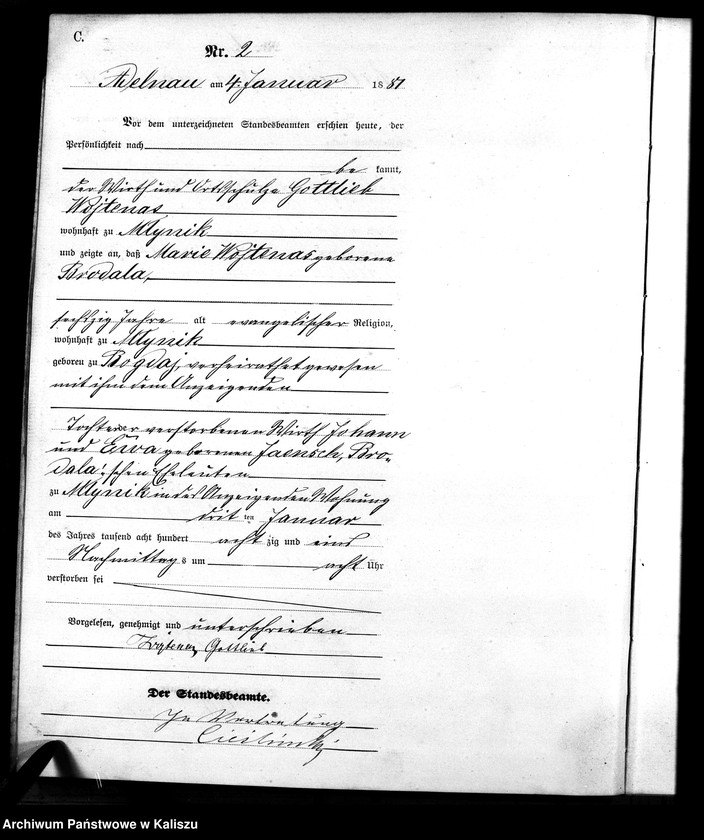 C.
Nr. 2
Adelnau am 4. Januar 1881
Vor dem unterzeichneten Standesbeamten erschien heute, der
Persönlichkeit nach
be kannt,
der Wirth und Ortsschulze Gottlieb
Wojtenas
wohnhaft zu Mlynik
und zeigte an, daß Marie Wojtenas geborene
Brodala,
sechzig Jahre alt evangelischer Religion,
wohnhaft zu Mlynik
geboren zu Bogdaj, verheirathet gewesen
mit ihm dem Anzeigenden
Tochter der verstorbenen Wirth Johann
und Ewa geborenen Jaensch, Bro-
dala'schen Eheleuten
zu Mlynik in des Anzeigenden Wohnung
am drit ten Januar
des Jahres tausend acht hundert acht zig und eins
Nachmittag s um acht Uhr
verstorben sei
Vorgelesen, genehmigt und unterschrieben
Gottlieb
Der Standesbeamte.
In Vertretung
Archiwum Państwowe w Kaliszu